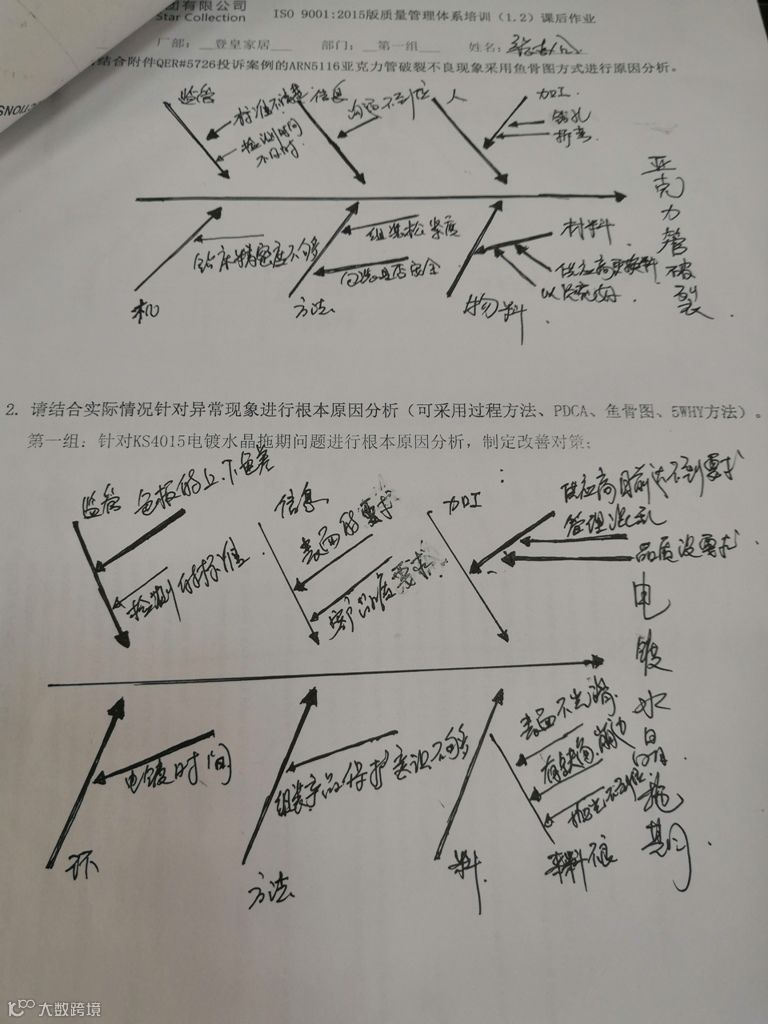 团有限公司
Star Collection
ISO 9001:2015版质量管理体系培训（1.2）课后作业
厂部：登皇家居 部门：第一组 姓名：
结合附件QER#5726投诉案例的ARN5116亚克力管破裂不良现象采用鱼骨图方式进行原因分析。
监管
标准不清楚
检测时间
不及时
信息
沟通不到位
人
加工
钻孔
折弯
亚克力管破裂
机
钻床精密度不够
方法
组装松紧度
包装是否安全
物料
材料
供应商更换料
以次充好
2. 请结合实际情况针对异常现象进行根本原因分析（可采用过程方法、PDCA、鱼骨图、5WHY方法）。
第一组：针对KS4015电镀水晶拖期问题进行根本原因分析，制定改善对策；
监管
色板的上、下色差
检测的标准
信息
表面的要求
客户品质要求
加工
供应商目前达不到要求
管理混乱
品质没要求
电镀水晶拖期
环
电镀时间
方法
组装产品保护意识不够
料
表面不光滑
有缺角、崩边
抛光不到位
来料不良
大数跨境